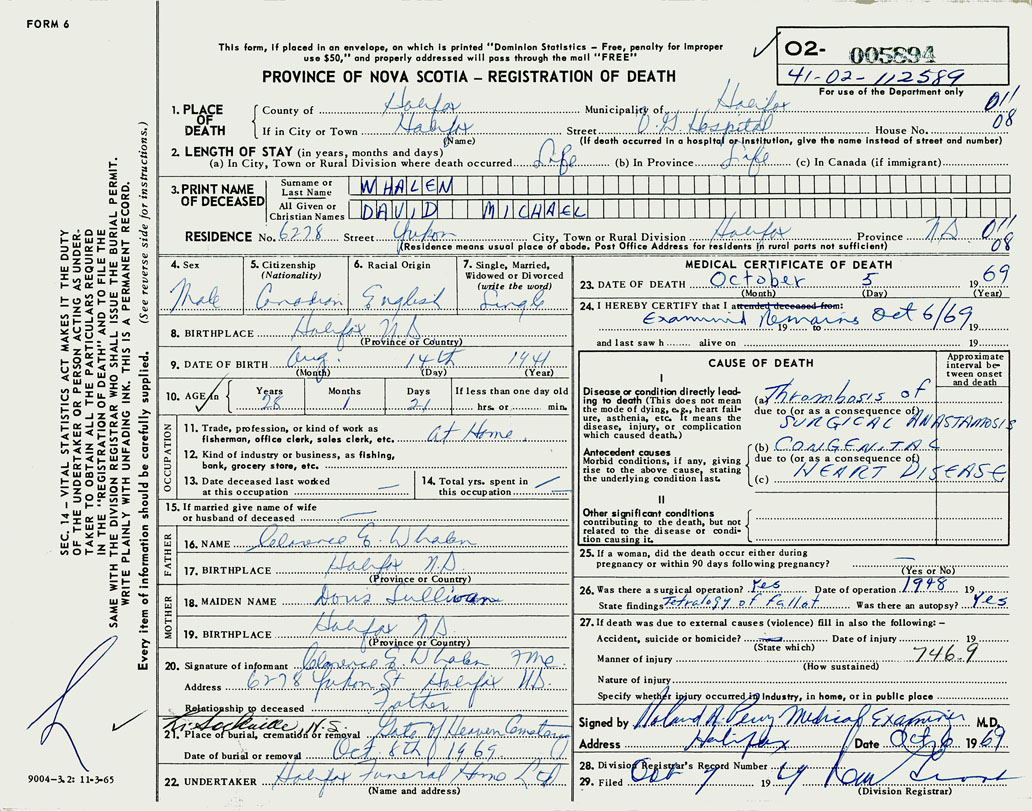 FORM 6
This form, if placed in an envelope, on which is printed "Dominion Statistics – Free, penalty for improper
use $50," and properly addressed will pass through the mail "FREE"
PROVINCE OF NOVA SCOTIA – REGISTRATION OF DEATH
02- 005894
41-02-112589
For use of the Department only
1. PLACE OF DEATH
County of Halifax Municipality of Halifax 011
If in City or Town Halifax Street O.G. Hospital House No. 08
(Name) (If death occurred in a hospital or institution, give the name instead of street and number)
2. LENGTH OF STAY (in years, months and days)
(a) In City, Town or Rural Division where death occurred Life (b) In Province Life (c) In Canada (if immigrant)
3. PRINT NAME OF DECEASED
Surname or Last Name WHALEN
All Given or Christian Names DAVID MICHAEL
RESIDENCE No. 6278 Street Yukon City, Town or Rural Division Halifax Province N.S. 011
(Residence means usual place of abode. Post Office Address for residents in rural parts not sufficient) 08
4. Sex
Male
5. Citizenship (Nationality)
Canadian
6. Racial Origin
English
7. Single, Married, Widowed or Divorced (write the word)
Single
8. BIRTHPLACE Halifax N.S.
(Province or Country)
9. DATE OF BIRTH Aug. 14th 1941
(Month) (Day) (Year)
10. AGE in Years Months Days If less than one day old
28 1 21 hrs. or min.
OCCUPATION
11. Trade, profession, or kind of work as
fisherman, office clerk, sales clerk, etc. at Home
12. Kind of industry or business, as fishing,
bank, grocery store, etc.
13. Date deceased last worked at this occupation —
14. Total yrs. spent in this occupation —
15. If married give name of wife
or husband of deceased —
FATHER
16. NAME Clarence E. Whalen
17. BIRTHPLACE Halifax N.S.
(Province or Country)
MOTHER
18. MAIDEN NAME Doris Sullivan
19. BIRTHPLACE Halifax N.S.
(Province or Country)
20. Signature of informant Clarence E Whalen
Address 6278 Yukon St Halifax N.S.
Relationship to deceased Father
Sackville N.S.
21. Place of burial, cremation or removal Gate of Heaven Cemetary
Date of burial or removal Oct. 8th 1969
22. UNDERTAKER Halifax Funeral Home Ltd
(Name and address)
MEDICAL CERTIFICATE OF DEATH
23. DATE OF DEATH October 5 1969
(Month) (Day) (Year)
24. I HEREBY CERTIFY that I attended deceased from:
Examined Remains Oct 6/69
19 to 19
and last saw h alive on 19
CAUSE OF DEATH
Approximate interval between onset and death
I
Disease or condition directly leading to death (This does not mean
the mode of dying, e.g., heart failure, asthenia, etc. It means the
disease, injury, or complication which caused death.)
(a) Thrombosis of
due to (or as a consequence of)
SURGICAL ANASTAMOSIS
Antecedent causes
Morbid conditions, if any, giving
rise to the above cause, stating
the underlying condition last.
(b) CONGENITAL
due to (or as a consequence of)
(c) HEART DISEASE
II
Other significant conditions
contributing to the death, but not
related to the disease or condition causing it.
25. If a woman, did the death occur either during
pregnancy or within 90 days following pregnancy? —
(Yes or No)
26. Was there a surgical operation? Yes Date of operation 1948 19
State findings Tetralogy of Fallot Was there an autopsy? Yes
27. If death was due to external causes (violence) fill in also the following: –
Accident, suicide or homicide? — Date of injury 19
(State which)
Manner of injury 746.9
(How sustained)
Nature of injury
Specify whether injury occurred in Industry, in home, or in public place
Signed by Roland A. Perry Medical Examiner M.D.
Address Halifax Date Oct 6 1969
28. Division Registrar's Record Number
29. Filed Oct 7 1969
(Division Registrar)
SEC. 14 – VITAL STATISTICS ACT MAKES IT THE DUTY
OF THE UNDERTAKER OR PERSON ACTING AS UNDER-
TAKER TO OBTAIN ALL THE PARTICULARS REQUIRED
IN THE "REGISTRATION OF DEATH" AND TO FILE THE
SAME WITH THE DIVISION REGISTRAR WHO SHALL ISSUE THE BURIAL PERMIT.
WRITE PLAINLY WITH UNFADING INK. THIS IS A PERMANENT RECORD.
Every item of information should be carefully supplied. (See reverse side for instructions.)
9004-3.2: 11-3-65